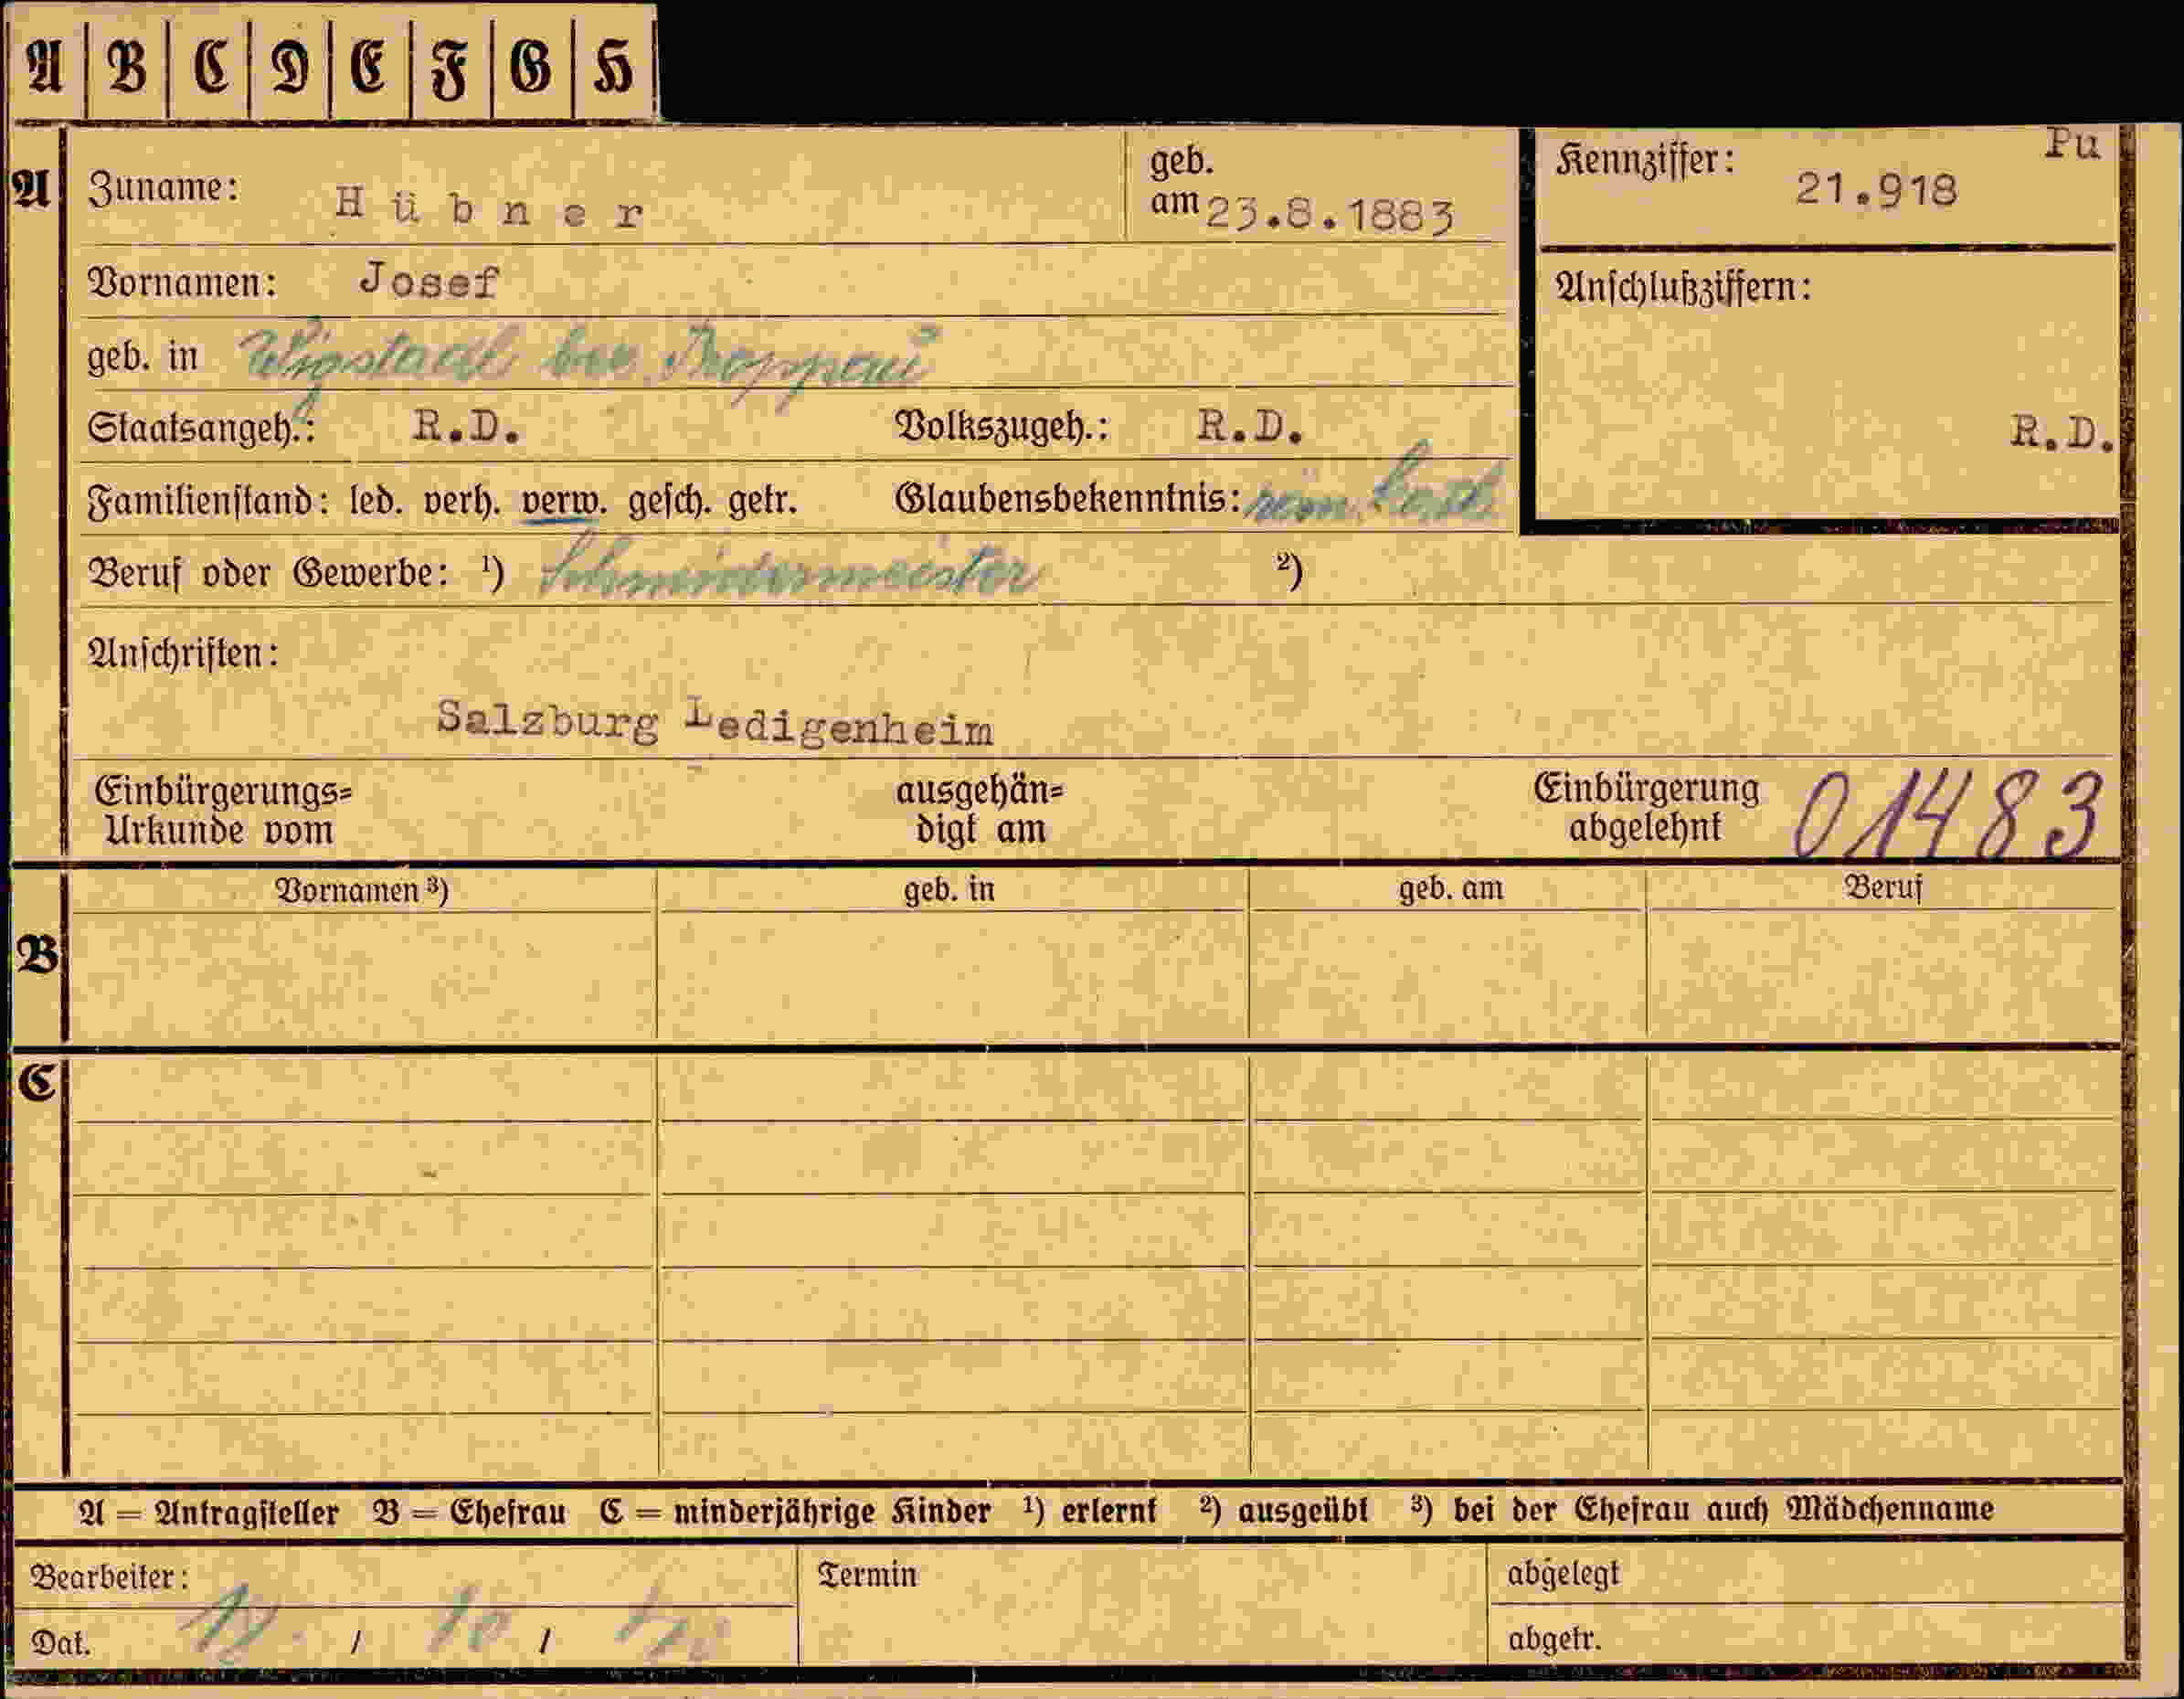 A B C D E F G H
Pu
A Zuname: Hübner geb. am 23.8.1883 Kennziffer: 21.918
Vornamen: Josef Anschlußziffern:
geb. in Wigstadl bei Troppau
Staatsangeh.: R.D. Volkszugeh.: R.D. R.D.
Familienstand: led. verh. verw. gesch. getr. Glaubensbekenntnis: röm. kath
Beruf oder Gewerbe: ¹) Schneidermeister ²)
Anschriften:
Salzburg Ledigenheim
Einbürgerungs= ausgehän= Einbürgerung
Urkunde vom digt am abgelehnt 01483
Vornamen ³) geb. in geb. am Beruf
B
C
A = Antragsteller B = Ehefrau C = minderjährige Kinder ¹) erlernt ²) ausgeübt ³) bei der Ehefrau auch Mädchenname
Bearbeiter: Termin abgelegt
Dat. / 10 / abgetr.